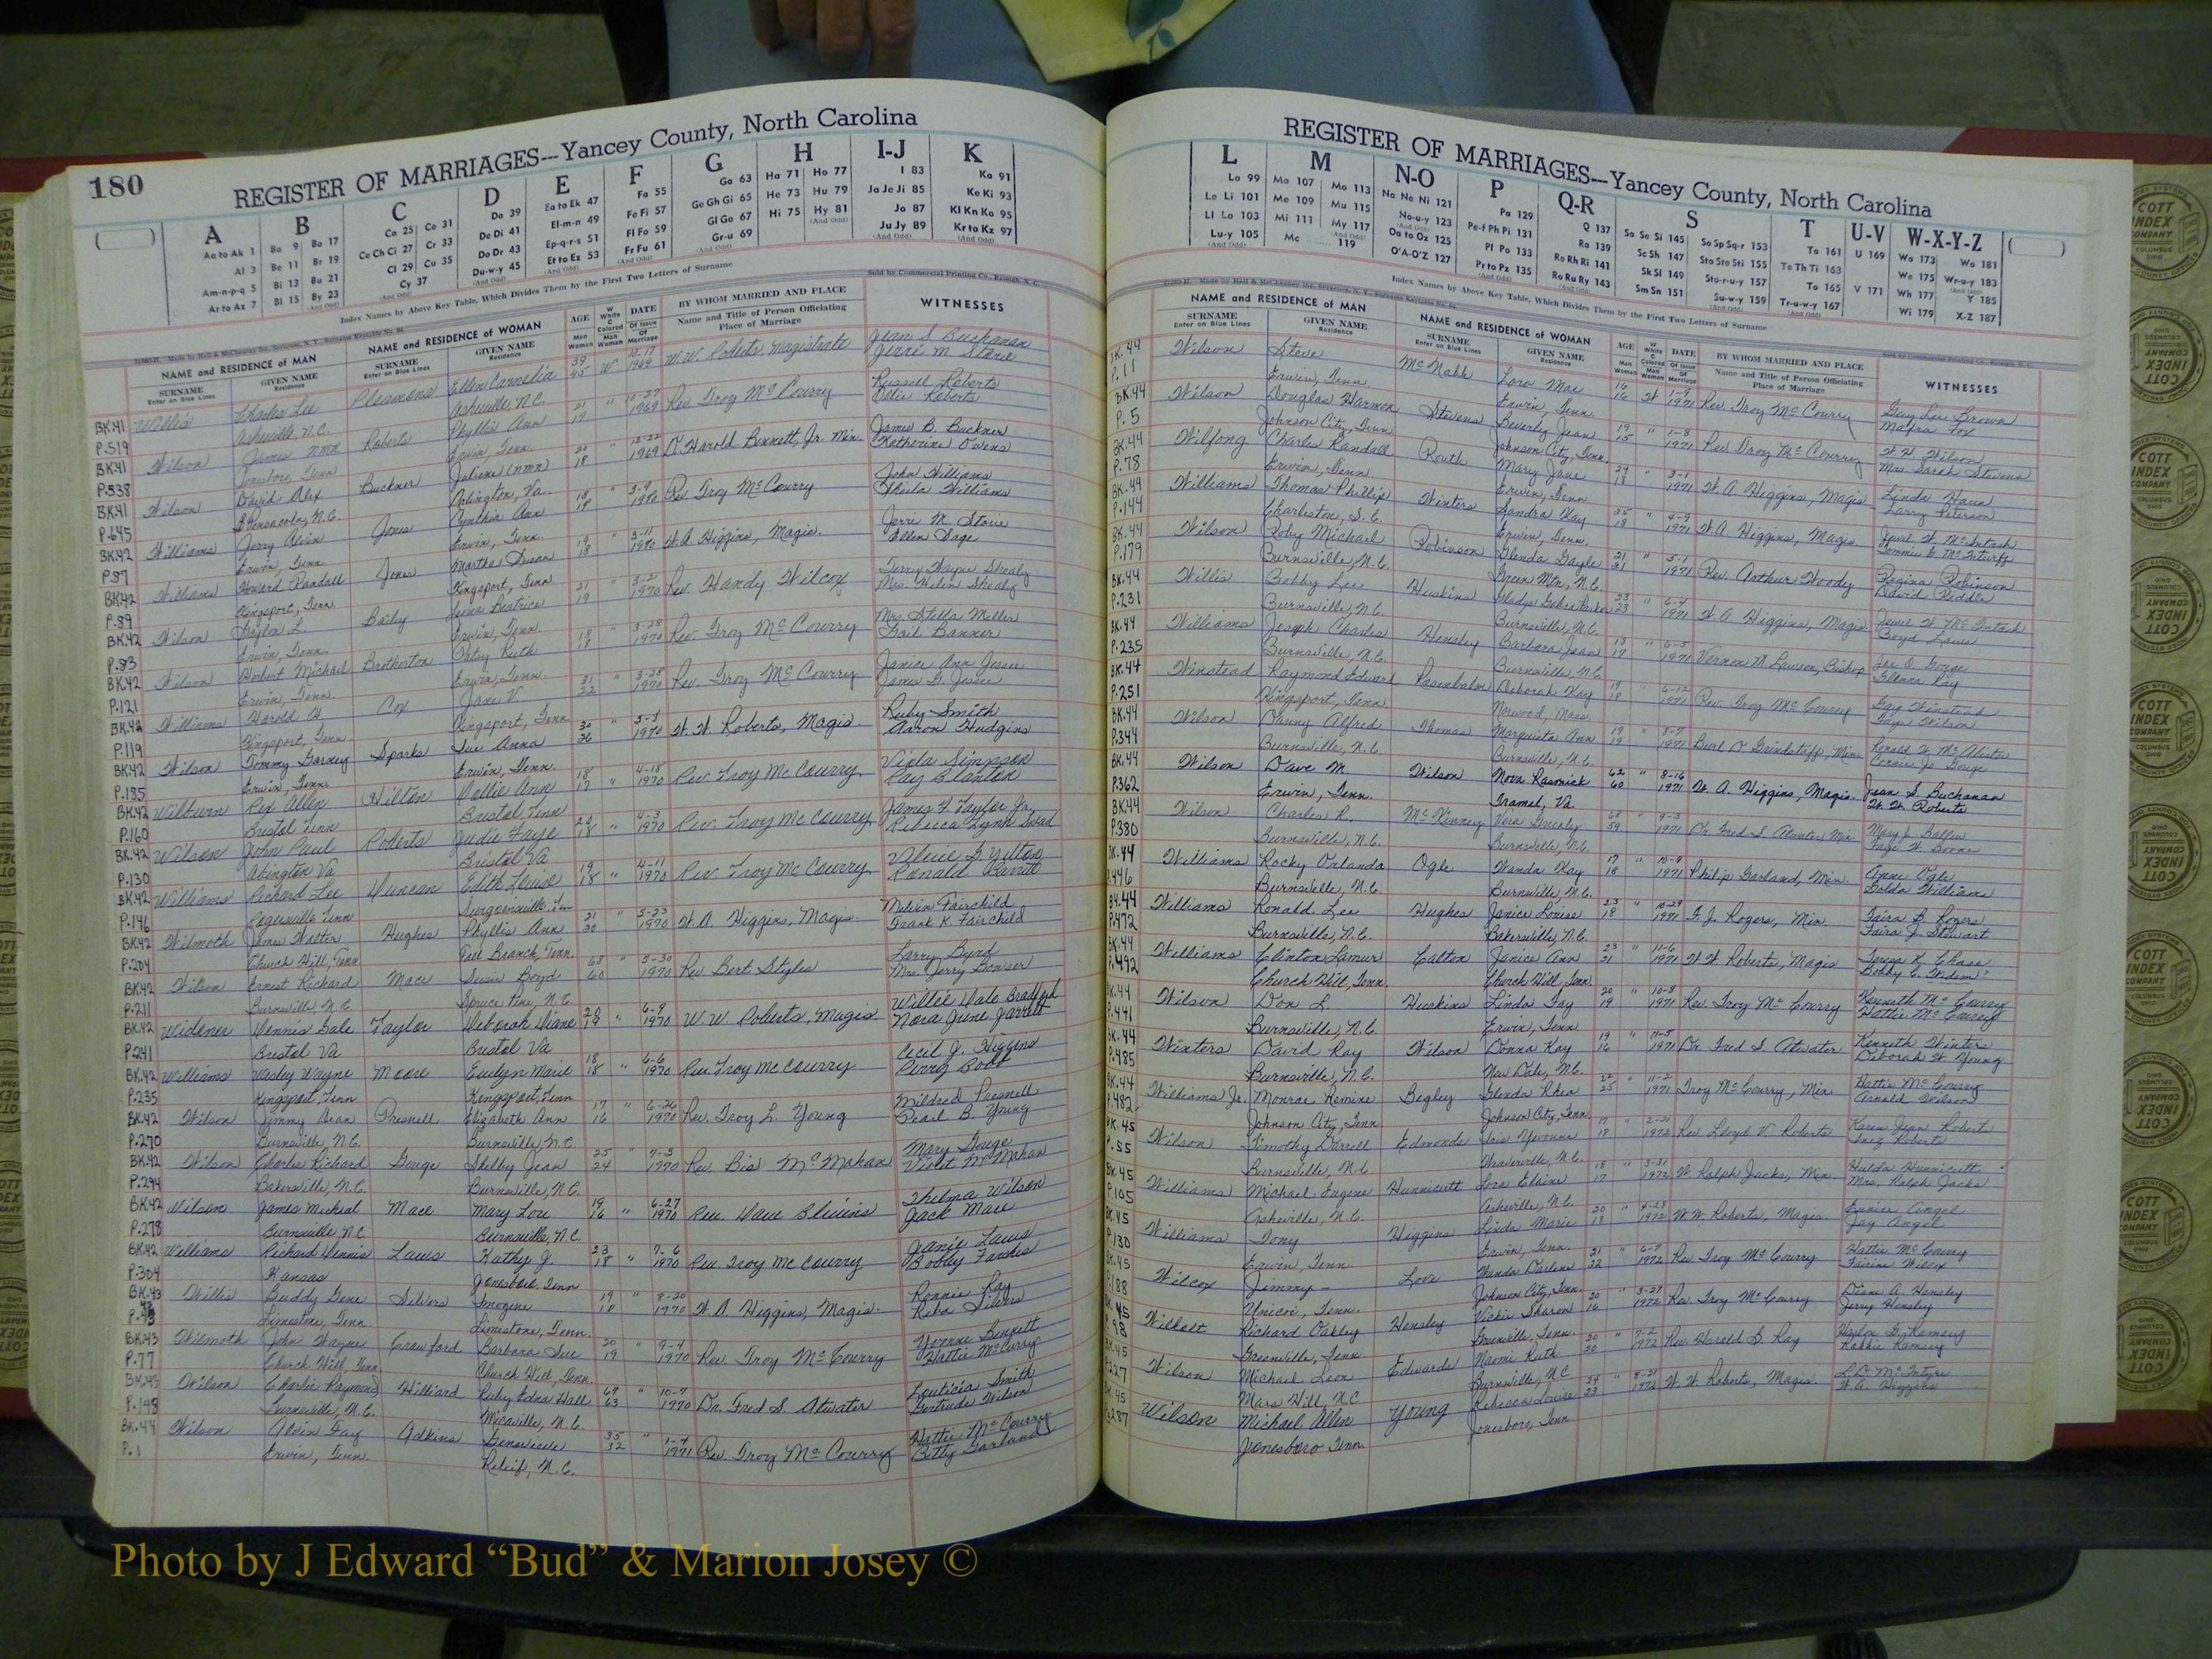 180
REGISTER OF MARRIAGES---Yancey County, North Carolina
A B C D E F G H I-J K
Aa to Ak 1 Ba 9 Bo 17 Ca 25 Co 31 Da 39 Ea to Ek 47 Fa 55 Ga 63 Ha 71 Ho 77 I 83 Ka 91
Al 3 Be 11 Br 19 Ce Ch Ci 27 Cr 33 De Di 41 El-m-n 49 Fe Fi 57 Ge Gh Gi 65 He 73 Hu 79 Ja Je Ji 85 Ke Ki 93
Am-n-p-q 5 Bi 13 Bu 21 Cl 29 Cu 35 Do Dr 43 Ep-q-r-s 51 Fl Fo 59 Gl Go 67 Hi 75 Hy 81 Jo 87 Kl Kn Ko 95
Ar to Az 7 Bl 15 By 23 Cy 37 Du-w-y 45 Et to Ez 53 Fr Fu 61 Gr-u 69 Ju Jy 89 Kr to Kz 97
Index Names by Above Key Table, Which Divides Them by the First Two Letters of Surname
Sold by Commercial Printing Co., Raleigh, N. C.
NAME and RESIDENCE of MAN NAME and RESIDENCE of WOMAN AGE DATE BY WHOM MARRIED AND PLACE WITNESSES
SURNAME Enter on Blue Lines GIVEN NAME Residence SURNAME Enter on Blue Lines GIVEN NAME Residence Man Woman W White C Colored Man Woman Of Issue Of Marriage Name and Title of Person Officiating Place of Marriage
BK.41 Willis Charles Lee Plemons Ellen Cornelia 39 W 1969 W.W. Roberts Magistrate Jean S Buchanan
P.519 Asheville, N.C. Asheville, N.C. 45 Jerri M Storie
BK.41 Wilson James nmn Roberts Phyllis Ann 21 " 1969 Rev Troy McCourry Russell Roberts
P.538 Erwin, Tenn. 19 Roberts
BK.41 Wilson David Alex Buckner Juliene (nmn) 20 12-22 1969 D. Harold Bennett, Jr. Min. James B. Buckner
P.645 Pensacola, N.C. Arlington, Va. 18 Katherine Owens
BK.42 Williams Jerry Alvin Jones Cynthia Ann 18 " Rev. Troy McCourry John Williams
P.37 Erwin, Tenn. Erwin, Tenn. Sheila Williams
BK.42 Williams Howard Randall Jones Martha Susan 19 " 3-11 W.A. Higgins, Magis. Jerri M. Storie
P.89 Kingsport, Tenn. Kingsport, Tenn 18 Ellen Sage
BK.42 Wilson Taylor L. Bailey Beatrice 21 " 1970 Rev. Handy Wilcox Terry Wayne Shealy
P.83 Erwin, Tenn. Erwin, Tenn. 19 Mrs. Helen Shealy
BK.42 Wilson Herbert Michael Brotherton Patsy Ruth 18 " 3-28 1970 Rev. Troy McCourry Mrs. Stella Miller
P.121 Erwin, Tenn. Erwin, Tenn. 18 Gail Banner
BK.42 Williams Harold H. Cox Jane V. 31 " 3-28 1970 Rev Troy McCourry Janice Ann Jessee
P.119 Kingsport, Tenn. Kingsport, Tenn 22 James G. Jessee
BK.42 Wilson Tommy Garney Sparks Sue Anna 30 " 1970 W.W. Roberts, Magis. Ruby Smith
P.185 Erwin, Tenn. Erwin, Tenn. 26 Aaron Hudgins
BK.42 Wilburn Rex Allen Hilton Dollie Ann 18 " 4-18 1970 Rev. Troy McCourry Viola Simpson
P.160 Bristol Tenn Bristol Tenn 17 Ray Blanton
BK.42 Wilson John Paul Roberts Judie Faye 20 " 4-3 1970 Rev. Troy McCourry James F. Taylor Jr.
P.130 Abington Va. Bristol Va 18 Rebecca Lynn
BK.42 Williams Richard Lee Duncan Edith Louise 19 " 4-11 1970 Rev. Troy McCourry
P.146 Rogersville Tenn Surgoinsville, Tenn 18 Ronald Barrett
BK.42 Wilmoth James Walter Hughes Phyllis Ann 21 " 5-23 1970 W.A. Higgins, Magis. Melvin Fairchild
P.204 Church Hill, Tenn Fall Branch, Tenn. 20 Frank K. Fairchild
BK.42 Wilson Ernest Richard Mace Susie Boyd 68 " 5-30 1970 Rev Bert Styles Larry Byrd
P.211 Burnsville, N.C. Spruce Pine, N.C. 60 Mrs. Jerry Bowser
BK.42 Widener Dennis Gale Taylor Deborah Diane 20 " 6-9 1970 W.W. Roberts, Magis. Willie Dale Bradford
P.241 Bristol Va Bristol Va 19 Nora June Jarrett
BK.42 Williams Wesley Wayne Moore Evelyn Marie 18 " 6-6 1970 Rev. Troy McCourry Cecil J. Higgins
P.235 Kingsport, Tenn Kingsport, Tenn 18 Perry Robb
BK.42 Wilson Jimmy Dean Presnell Elizabeth Ann 17 " 6-26 1970 Rev. Troy L. Young Mildred Presnell
P.270 Burnsville, N.C. Burnsville, N.C. 16 Pearl B. Young
BK.42 Wilson Charles Richard Gouge Shelby Jean 25 " 7-3 1970 Rev. Bis McMahan Mary Gouge
P.294 Bakersville, N.C. Burnsville, N.C. 24 Violet McMahan
BK.42 Wilson James Micheal Mace Mary Lou 19 " 6-27 1970 Rev. Dave Blevins Thelma Wilson
P.278 Burnsville, N.C. Burnsville, N.C. 16 Jack Mace
BK.42 Williams Richard Dennis Laws Kathy J. 23 " 7-6 1970 Rev. Troy McCourry Janie Laws
P.304 Kansas Jonesboro, Tenn 18 Bobby Fanshes
BK.43 Willis Buddy Gene Silvers Imogene 19 " 8-20 1970 W.A. Higgins, Magis. Ronnie Ray
P.43 Limestone, Tenn. Limestone, Tenn. 18 Reba Silvers
BK.43 Wilmoth John Wayne Crawford Barbara Sue 20 " 9-4 1970 Rev. Troy McCourry Yvonne Bennett
P.77 Church Hill, Tenn Church Hill, Tenn. 19 Hattie McCurry
BK.43 Wilson Charlie Raymond Hilliard Ruby Edna Hall 67 " 10-7 1970 Dr. Fred S. Atwater Leuticia Smith
P.145 Burnsville, N.C. Micaville, N.C. 63 Gertrude Wilson
BK.44 Wilson Alvin Fay Adkins Genevieve 35 " 1-4 1971 Rev. Troy McCourry Hattie McCourry
P.1 Erwin, Tenn. Releif, N.C. 32 Betty Garland
REGISTER OF MARRIAGES---Yancey County, North Carolina
L M N-O P Q-R S T U-V W-X-Y-Z
La 99 Ma 107 Mo 113 Na Ne Ni 121 Pa 129 Q 137 Sa Se Si 145 Sa Sp Sq-r 153 Ta 161 U 169 Wa 173 Wo 181
Le Li 101 Me 109 Mu 115 No-u-y 123 Pe-f Ph Pi 131 Ra 139 Sc Sh 147 Sta Ste Sti 155 Te Th Ti 163 We 175 Wr-u-y 183
Ll Lo 103 Mi 111 My 117 Oa to Oz 125 Pl Po 133 Re Rh Ri 141 Sk Sl 149 Sto-r-u-y 157 To 165 V 171 Wh 177 Y 185
Lu-y 105 Mc 119 O'A-O'Z 127 Pr to Pz 135 Ro Ru Ry 143 Sm Sn 151 Su-w-y 159 Tr-u-w-y 167 Wi 179 X-Z 187
Index Names by Above Key Table, Which Divides Them by the First Two Letters of Surname
NAME and RESIDENCE of MAN NAME and RESIDENCE of WOMAN AGE DATE BY WHOM MARRIED AND PLACE WITNESSES
SURNAME Enter on Blue Lines GIVEN NAME Residence SURNAME Enter on Blue Lines GIVEN NAME Residence Man Woman W White C Colored Man Woman Of Issue Of Marriage Name and Title of Person Officiating Place of Marriage
BK.44 Wilson Steve McNabb Lora Mae 16 W 1971 Rev. Troy McCourry Guy Lee Brown
P.11 Erwin, Tenn Erwin, Tenn. 16 Fox
BK.44 Wilson Douglas Harmon Stevens Beverly Jean 19 " 1-8 1971 Rev Troy McCourry W.H. Wilson
P.5 Johnson City, Tenn Johnson City, Tenn. 15 Mrs Sarah Stevens
BK.44 Wilfong Charles Randall Routh Mary Jane 24 " 3-1 1971 W.A. Higgins, Magis. Linda
P.78 Erwin, Tenn. Erwin, Tenn 18 Larry Peterson
BK.44 Williams Thomas Phillip Winters Sandra Kay 25 " 4-9 1971 W.A. Higgins, Magis. Jewel W. McIntosh
P.144 Charleston, S.C. Erwin, Tenn. 18
BK.44 Wilson Roby Michael Robinson Glenda Gayle 21 " 5-1 1971 Rev. Arthur Woody Regina Robinson
P.179 Burnsville, N.C. Green Mtn, N.C. 21 David Riddle
BK.44 Willis Bobby Lee Huskins Gladys 23 " 1971 W.A. Higgins, Magis Jewel W. McIntosh
P.231 Burnsville, N.C. Burnsville, N.C. 23 Boyd Laws
BK.44 Williams Joseph Charles Hensley Barbara Jean " 6-5 1971 Vernon Lawson, Bishop Joe O. Gouge
P.235 Burnsville, N.C. Burnsville, N.C. 17 Glenna Ray
BK.44 Winstead Raymond Edward Rosenbalm Deborah Kay 19 " 6-12 1971 Rev. Troy McCourry Gay Winstead
P.251 Kingsport, Tenn. Norwood, Mass. 18 Faye Wilson
BK.44 Wilson Danny Alfred Thomas Marquita Ann 19 " 8-7 1971 Burl D. Grindstaff, Min Ronald W. McAlister
P.344 Burnsville, N.C. Burnsville, N.C. 19 Connie Jo Gouge
BK.44 Wilson Dave M. Wilson Nova Rasnick 62 " 8-16 1971 W.A. Higgins, Magis. Jean S. Buchanan
P.362 Erwin, Tenn. Tramel, Va. 60 W.W. Roberts
BK.44 Wilson Charles R. McKinney Vera Beverly 68 " 9-3 1971 Dr Fred S. Atwater, Min Mary J. Ballew
P.380 Burnsville, N.C. Burnsville, N.C. 59 Faye W Boone
BK.44 Williams Rocky Orlanda Ogle Wanda Kay 17 " 10-9 1971 Philip Garland, Min. Anne Ogle
P.446 Burnsville, N.C. Burnsville, N.C. 18 Golda Williams
BK.44 Williams Ronald Lee Hughes Janice Louise 23 " 10-29 1971 F.J. Rogers, Min Faira B. Rogers
P.472 Burnsville, N.C. Bakersville, N.C. 18 Faira J. Stewart
BK.44 Williams Clinton Lamur Calton Janice Ann 23 " 11-6 1971 W.W. Roberts, Magis Teresa K. Chase
P.492 Church Hill, Tenn. Church Hill, Tenn. 21 Bobby C. Widener
BK.44 Wilson Don L. Huskins Linda Fay 20 " 10-8 1971 Rev. Troy McCourry Kenneth McCourry
P.441 Burnsville, N.C. Erwin, Tenn 19 Hattie McCourry
BK.44 Winters David Ray Wilson Donna Kay 19 " 11-5 1971 Dr. Fred S. Atwater Kenneth Winters
P.485 Burnsville, N.C. New Dale, N.C. 16 Deborah W Young
BK.44 Williams Jr. Monroe Hemine Begley Glenda Rhea 22 " 11-2 1971 Troy McCourry, Min Hattie McCourry
P.482 Johnson City, Tenn Johnson City, Tenn. 25 Arnold Wilson
BK.45 Wilson Timothy Darrell Edmonds Iris Yvonne 17 " 1972 Rev Lloyd V. Roberts Karen Jean Roberts
P.55 Burnsville, N.C. Weaverville, N.C. 18 Inez Roberts
BK.45 Williams Michael Eugene Hunnicutt Lora Elaine 18 " 3-31 1972 W. Ralph Jacks, Min. Hulda Hunnicutt
P.105 Asheville, N.C. Asheville, N.C. 17 Mrs. Ralph Jacks
BK.45 Williams Tony Higgins Linda Marie 20 " 4-23 1972 W.W. Roberts, Magis Eunice Angel
P.130 Erwin, Tenn. Erwin, Tenn. 18 Jay Angel
BK.45 Wilcox Jimmy - Love Wanda Darlene 21 " 6-7 1972 Rev Troy McCourry Hattie McCourry
P.188 Unicoi, Tenn. Johnson City, Tenn. 22 Wilcox
BK.45 Wilhoit Richard Oakley Hensley Vickie Sharon 20 " 3-27 1972 Rev. Troy McCourry Diane A. Hensley
P.98 Greenville, Tenn. Greenville, Tenn. 16 Jerry Hensley
BK.45 Wilson Michael Leon Edwards Naomi Ruth 20 " 7-2 1972 Rev. Harold S. Ray Ramsey
P.227 Mars Hill, N.C Burnsville, N.C 20 Ramsey
BK.45 Wilson Michael Allen Young Rebecca Louise 24 " 8-21 1972 W.W. Roberts, Magis. L.D. McIntyre
P.287 Jonesboro Tenn. Jonesboro, Tenn. 23 W.A. Higgins
Photo by J Edward “Bud” & Marion Josey ©